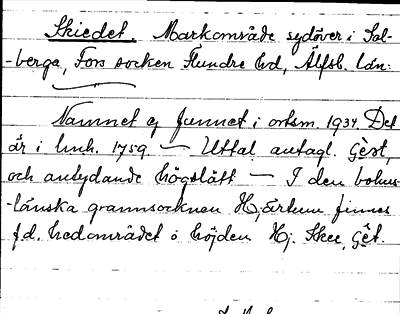 Skiedet. Markområde sydöver i Sol-
-berga, Fors socken Flundre hd, Älfsb. län:
Namnet ej funnet i ortsm. 1934. Det
är i lmh. 1759 — Uttal antagl. Gèst,
och antydande högslätt — I den bohus-
-länska grannsocknen Hjärtum finnes
f.d. hedområdet å höjden Hj. Skee, Gêt.